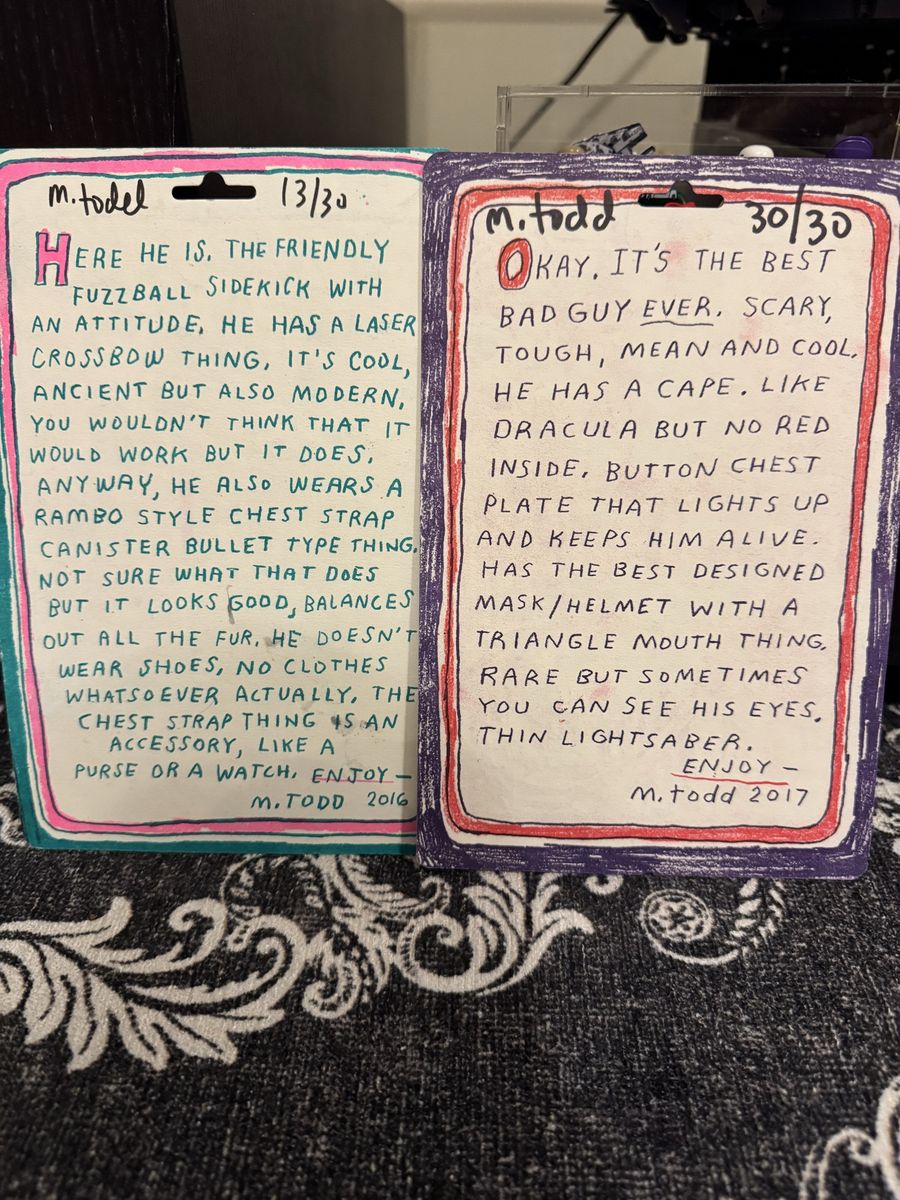 M. Todd 13/30
HERE HE IS. THE FRIENDLY
FUZZBALL SIDEKICK WITH
AN ATTITUDE. HE HAS A LASER
CROSSBOW THING, IT'S COOL,
ANCIENT BUT ALSO MODERN,
YOU WOULDN'T THINK THAT IT
WOULD WORK BUT IT DOES.
ANYWAY, HE ALSO WEARS A
RAMBO STYLE CHEST STRAP
CANISTER BULLET TYPE THING.
NOT SURE WHAT THAT DOES
BUT IT LOOKS GOOD, BALANCES
OUT ALL THE FUR. HE DOESN'T
WEAR SHOES, NO CLOTHES
WHATSOEVER ACTUALLY. THE
CHEST STRAP THING IS AN
ACCESSORY, LIKE A
PURSE OR A WATCH. ENJOY—
M. TODD 2016
M. Todd 30/30
OKAY. IT'S THE BEST
BAD GUY EVER. SCARY,
TOUGH, MEAN AND COOL.
HE HAS A CAPE. LIKE
DRACULA BUT NO RED
INSIDE. BUTTON CHEST
PLATE THAT LIGHTS UP
AND KEEPS HIM ALIVE.
HAS THE BEST DESIGNED
MASK/HELMET WITH A
TRIANGLE MOUTH THING.
RARE BUT SOMETIMES
YOU CAN SEE HIS EYES.
THIN LIGHTSABER.
ENJOY—
M. Todd 2017